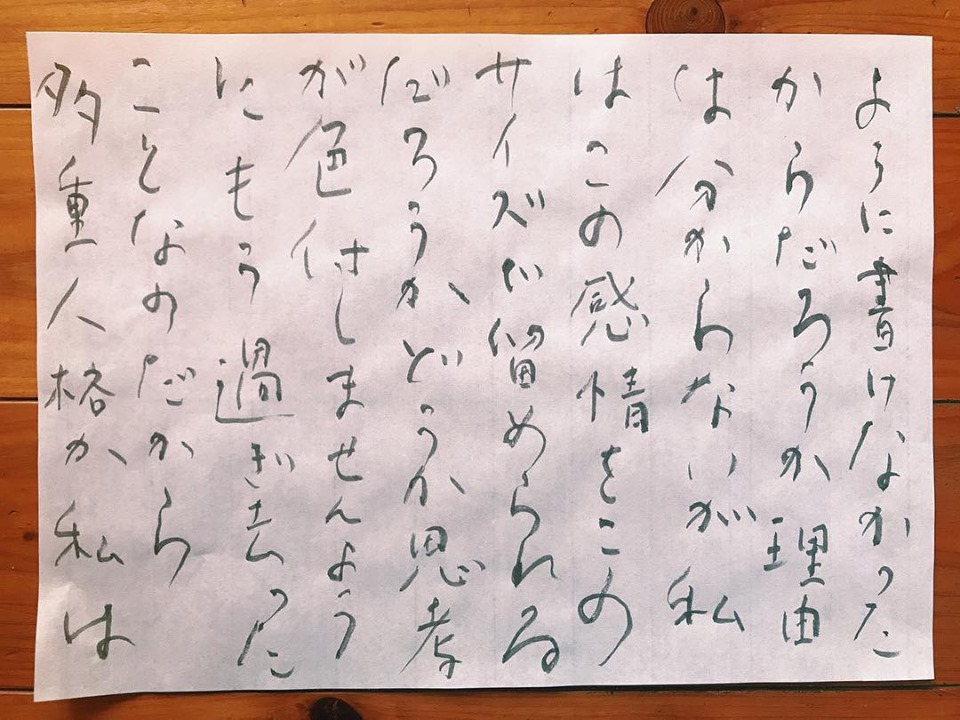 ように書けなかった
からだろうか理由
は分からないが私
はこの感情をこの
サイズで留められる
だろうかどうか思考
が色付しませんよう
にもう過ぎ去った
ことなのだから
多重人格か私は